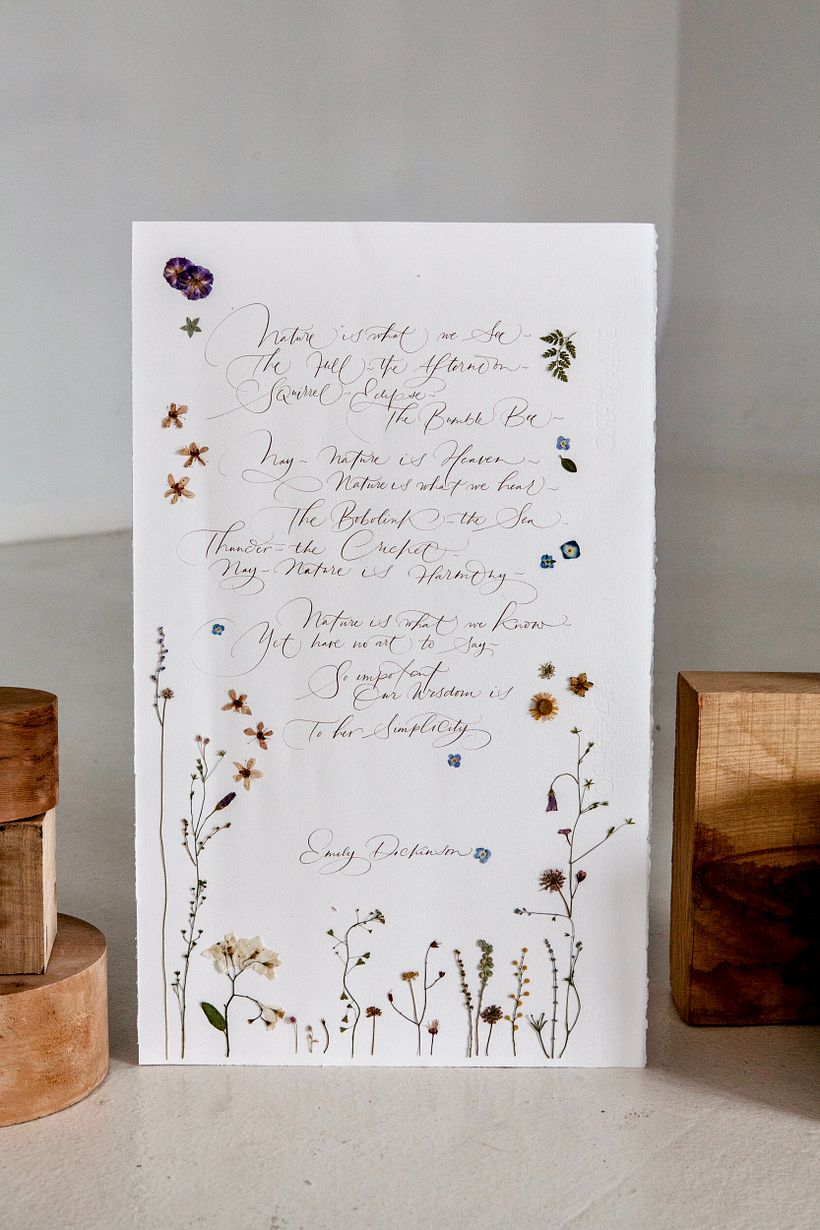 Nature is what we See~
The Hill~the Afternoon~
Squirrel~Eclipse~
The Bumble Bee~
Nay~Nature is Heaven~
Nature is what we hear~
The Bobolink~the Sea~
Thunder~the Cricket~
Nay~Nature is Harmony~
Nature is what we know~
Yet have no art to say~
So impotent
Our Wisdom is
To her Simplicity
Emily Dickinson